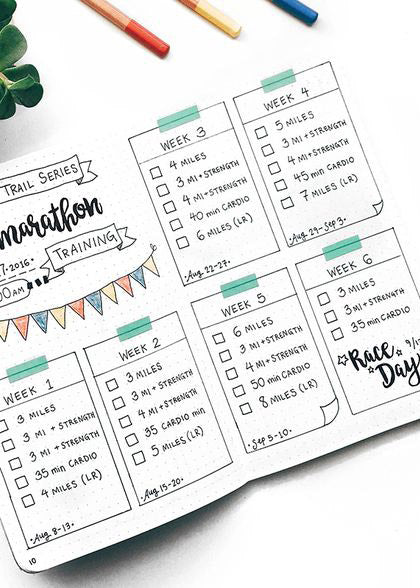 TRAIL SERIES
marathon
TRAINING
7·2016·
00AM
WEEK 1
3 MILES
3 MI + STRENGTH
3 MI + STRENGTH
35 min CARDIO
4 MILES (LR)
·Aug 8-13·
WEEK 2
3 MILES
3 MI + STRENGTH
4 MI + STRENGTH
35 CARDIO min
5 MILES (LR)
·Aug 15-20·
WEEK 3
4 MILES
3 MI + STRENGTH
4 MI + STRENGTH
40 min CARDIO
6 MILES (LR)
·Aug 22-27·
WEEK 4
5 MILES
3 MI + STRENGTH
4 MI + STRENGTH
45 min CARDIO
7 MILES (LR)
·Aug 29-Sep 3·
WEEK 5
6 MILES
3 MI + STRENGTH
4 MI + STRENGTH
50 min CARDIO
8 MILES (LR)
·Sep 5-10·
WEEK 6
3 MILES
3 MI + STRENGTH
35 min CARDIO
Race
Day
10